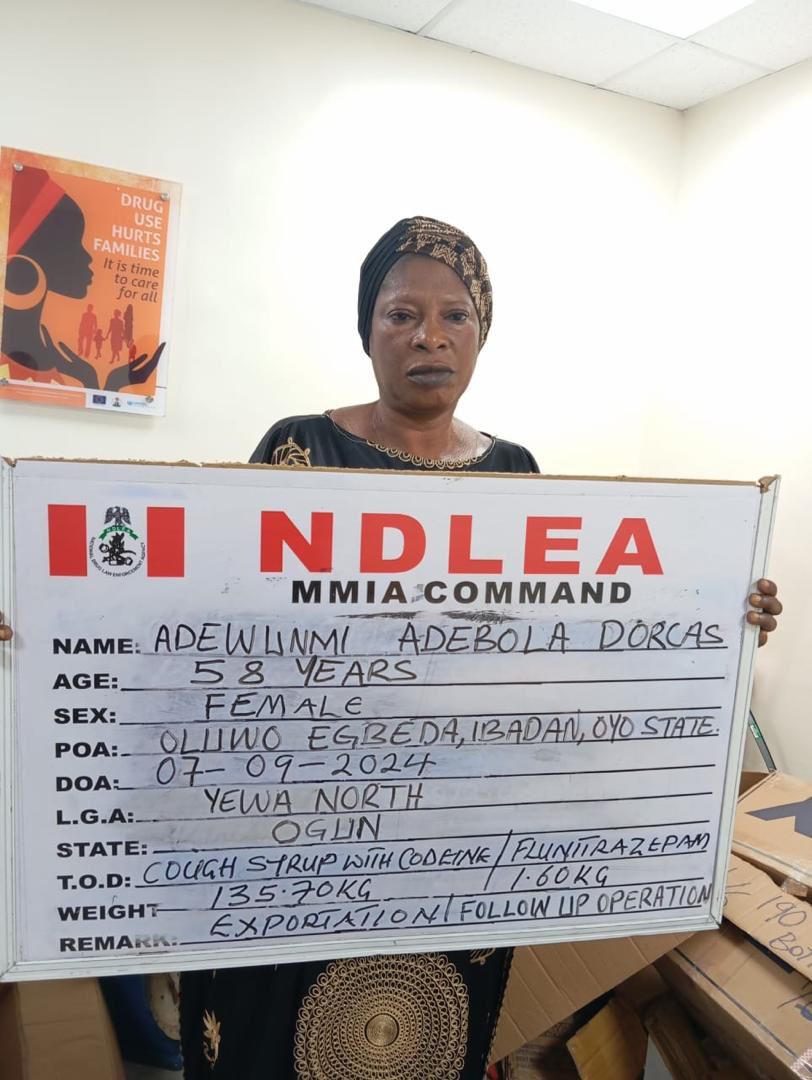 DRUG
USE
HURTS
FAMILIES
It is time
to care
for all
NDLEA
MMIA COMMAND
NAME: ADEWUNMI ADEBOLA DORCAS
AGE: 58 YEARS
SEX: FEMALE
POA: OLUWO EGBEDA, IBADAN, OYO STATE.
DOA: 07-09-2024
L.G.A: YEWA NORTH
STATE: OGUN
T.O.D: COUGH SYRUP WITH CODEINE / FLUNITRAZEPAM
WEIGHT 135.70KG / 1.60KG
REMARK: EXPORTATION / FOLLOW UP OPERATION
190